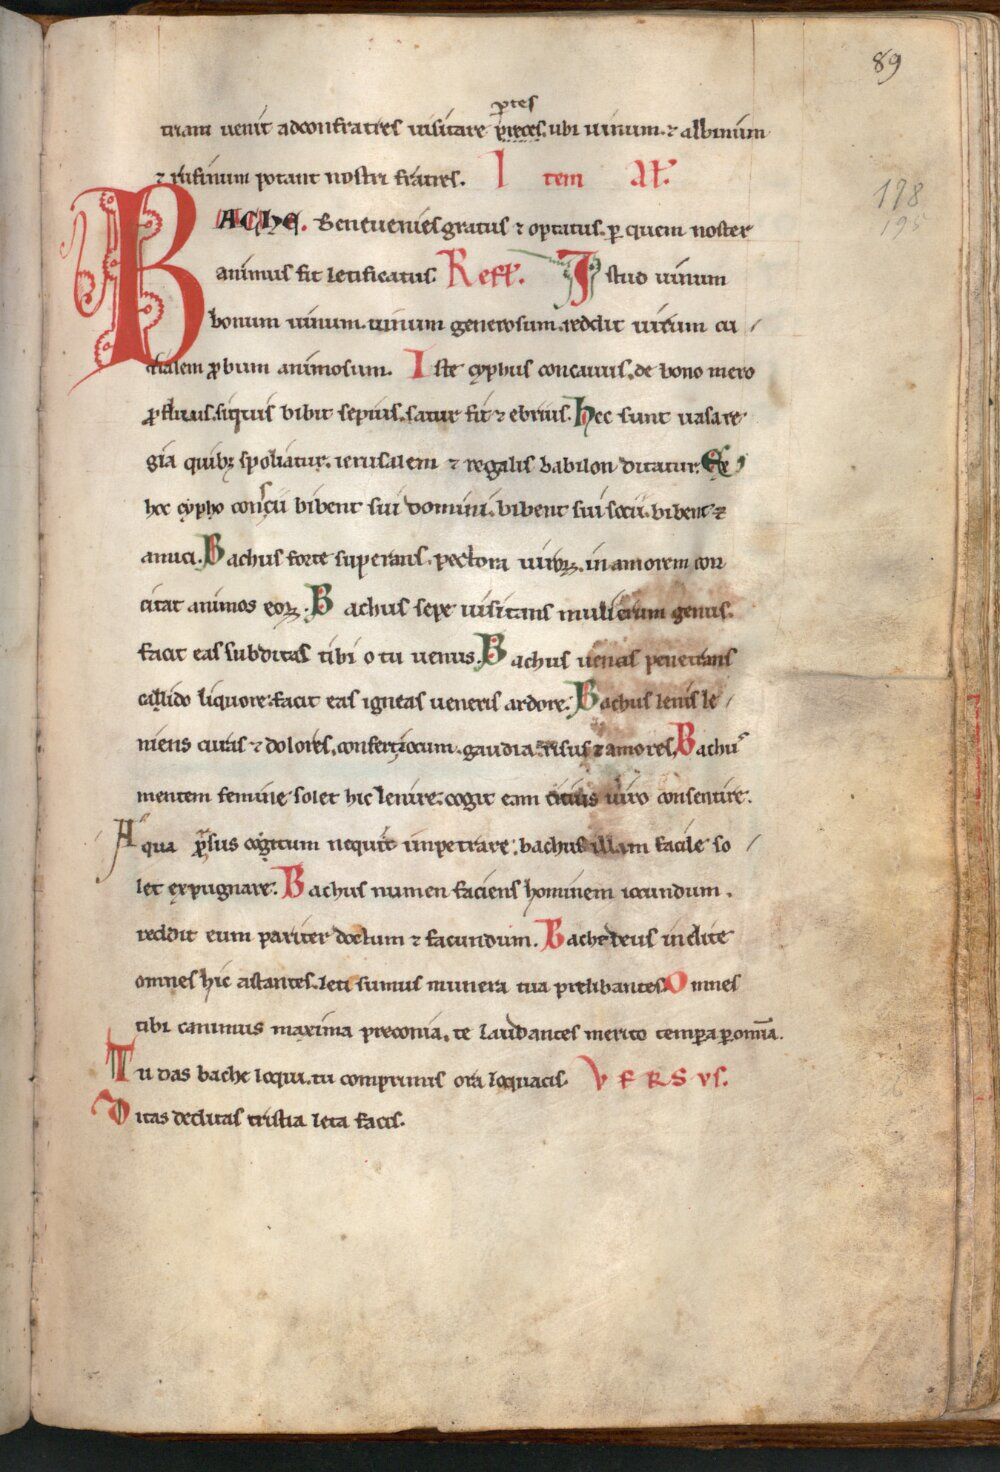 89
ptes
tram uenit adconfratres uisitare preces. ubi uinum. ⁊ albinum
⁊ rufinum potant nostri fratres. Item Aƚ.
178
195
BACHE. Beneuenies gratus ⁊ optatus. p quem noster
animus fit letificatus. Refƚ. Istud uinum
bonum uinum. uinum generosum. reddit uirum cu /
rialem probum animosum. Iste cyphus concauus. de bono mero
profluus. siquis bibit sepius. satur fit ⁊ ebrius. Hec sunt uasa re
gia quibꝫ spoliatur. ierusalem ⁊ regalis babilon ditatur. Ex
hoc cypho conscii bibent sui domini. bibent sui socii. bibent ⁊
amici. Bachus forte superans. pectora uiroꝝ. in amorem con
citat animos eoꝝ. Bachus sepe uisitans mulierum genus.
facit eas subditas tibi o tu uenus. Bachus uenas penetrans
calido liquore. facit eas igneas ueneris ardore. Bachus lenis le /
niens curas ⁊ dolores. confert iocum. gaudia. risus ⁊ amores. Bachus
mentem femine solet hic lenire. cogit eam citius uiro consentire.
Aqua prsus cogitum nequit inpetrare. bachus illam facile so /
let expugnare. Bachus numen faciens hominem iocundum.
reddit eum pariter doctum ⁊ facundum. Bache deus inclite
omnes hic astantes. leti sumus munera tua prelibantes. Omnes
tibi canimus maxima preconia. te laudantes merito tempa p omia.
Tu das bache loqui. tu comprimis ora loquacis. VERSVS.
Ditas deditas tristia leta facis.